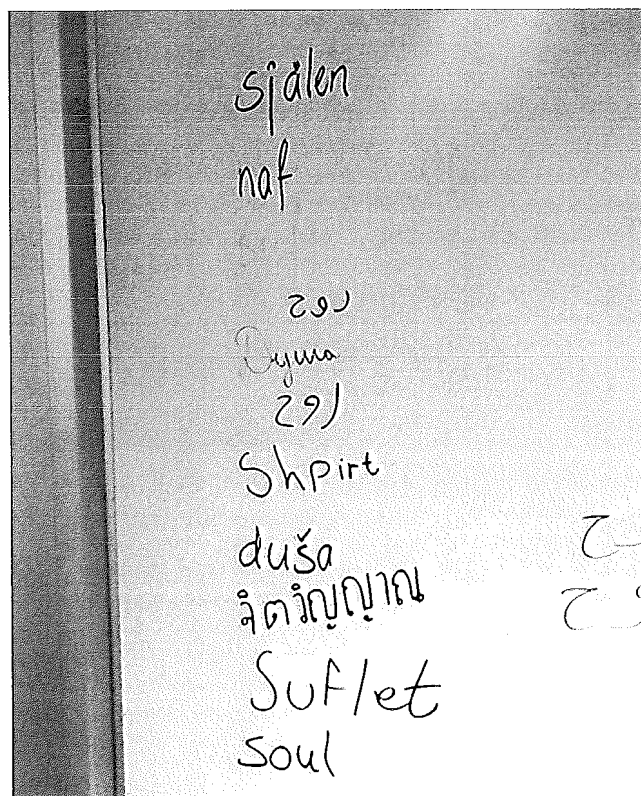 själen
naf
روح
Душа
روح
Shpirt
duša
จิตวิญญาณ
Suflet
soul